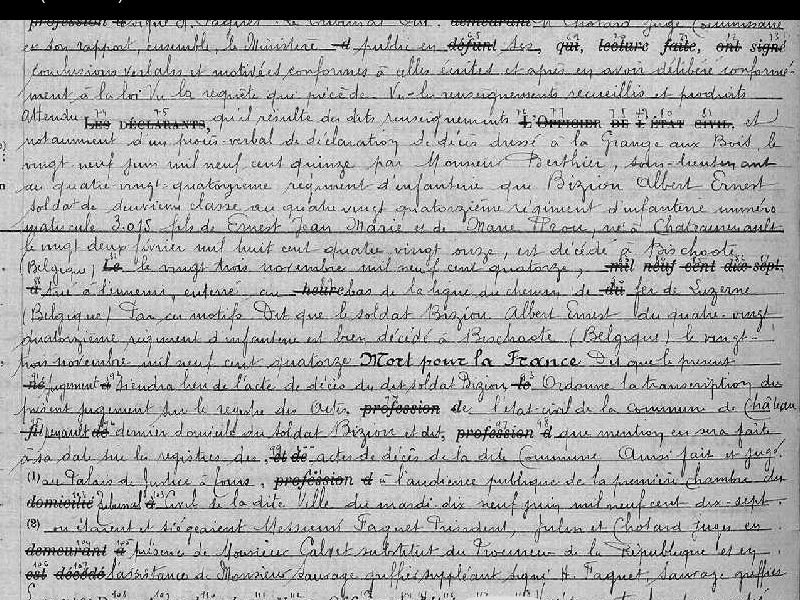 en son rapport, ensemble, le Ministère d public en défunt ses, qui, lecture faite, ont signé
conclusions verbales et motivées conformes à celles écrites et après en avoir délibéré conformé-
ment à la loi Vu la requête qui précède Vu les renseignements recueillis et produits
Attendu LES DÉCLARANTS, qu'il résulte des dits renseignements L'OFFICIER DE L'ÉTAT CIVIL, et
notamment d'un procès-verbal de déclaration de décès dressé à la Grange aux Bois, le
vingt neuf juin mil neuf cent quinze par Monsieur Berthier, sous-lieutenant
au quatre vingt quatorzième régiment d'infanterie que Bizion Albert Ernest
soldat de deuxième classe au quatre vingt quatorzième régiment d'infanterie numéro
matricule 3.015 fils de Ernest Jean Marie et de Marie né à Chateaureneault
le vingt deux février mil huit cent quatre vingt onze, est décédé à Bischoote
(Belgique) Le le vingt trois novembre mil neuf cent quatorze, mil neuf cent dix sept,
d tué à l'ennemi, enterré au heure bas de la ligne du chemin de du fer de Luzerne
(Belgique) Par ces motifs Dit que le soldat Bizion Albert Ernest du quatre-vingt
quatorzième régiment d'infanterie est bien décédé à Bischoote (Belgique) le vingt-
trois novembre mil neuf cent quatorze Mort pour la France Dit que le présent
jugement d tiendra lieu de l'acte de décès du dit soldat Bizion Ordonne la transcription du
présent jugement sur le registre des Actes profession de l'état-civil de la commune de Château-
fil renault de dernier domicile du soldat Bizion et dit, profession d que mention en sera faite
à sa date sur les registres des et de actes de décès de la dite Commune Ainsi fait et jugé
(1) au Palais de Justice à Tours, profession d à l'audience publique de la première chambre du
domicilié Tribunal d Civil de la dite Ville du mardi dix neuf juin mil neuf cent dix-sept
(2) où étaient et siégeaient Messieurs Faguet Président, Julin et Chotard juges en
demeurant à présence de Monsieur Calvet substitut du Procureur de la République et en
est décédé l'assistance de Monsieur Sauvage greffier suppléant Signé H. Faguet, Sauvage greffier